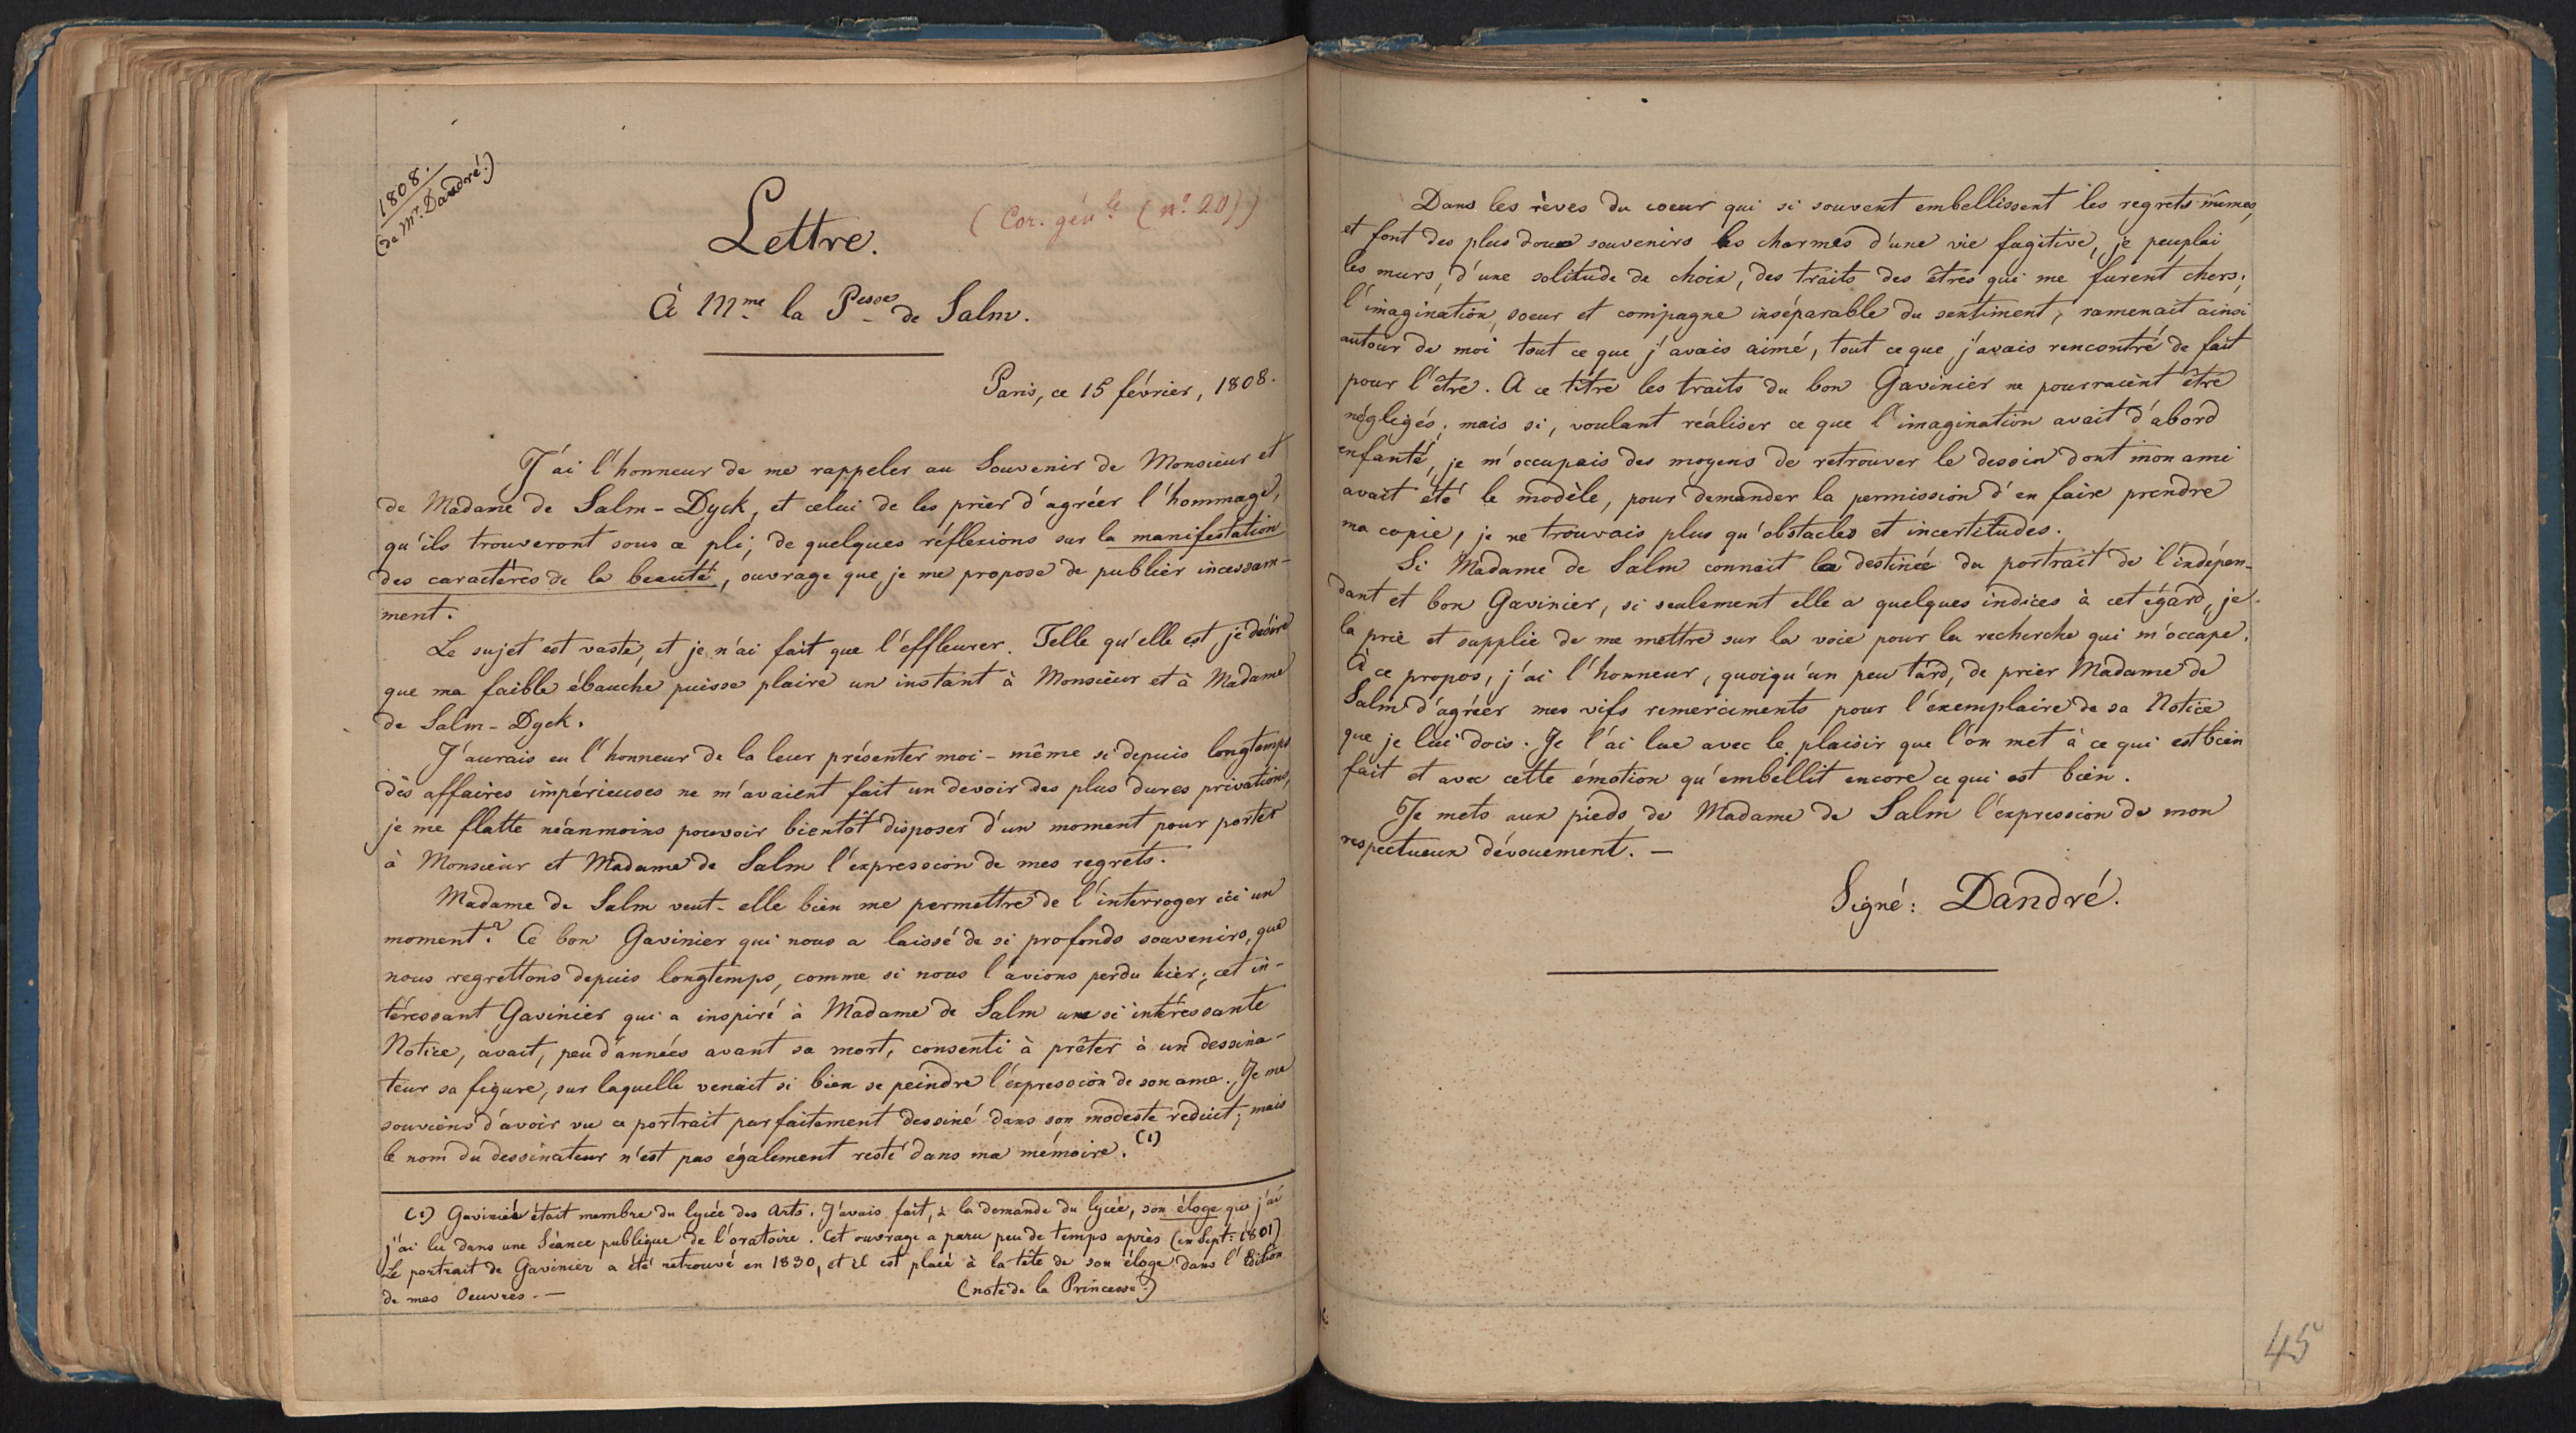 1808.
(de Mr. Dandré.)
(Cor. génle. (n.° 20))
Lettre.
À Mme la Pesse de Salm.
Paris, ce 15 février, 1808.
J'ai l'honneur de me rappeler au Souvenir de Monsieur et
de Madame de Salm-Dyck, et celui de les prier d'agréer l'hommage,
qu'ils trouveront sous ce pli; de quelques réflexions sur la manifestation
des caractères de la beauté, ouvrage que je me propose de publier incessam-
ment.
Le sujet est vaste, et je n'ai fait que l'effleurer. Telle qu'elle est je désire
que ma faible ébauche puisse plaire un instant à Monsieur et à Madame
de Salm-Dyck.
J'aurais eu l'honneur de la leur présenter moi-même si depuis longtemps
des affaires impérieuses ne m'avaient fait un devoir des plus dures privations,
je me flatte néanmoins pouvoir bientôt disposer d'un moment pour porter
à Monsieur et Madame de Salm l'expression de mes regrets.
Madame de Salm veut-elle bien me permettre de l'interroger ici un
moment? Ce bon Gavinier qui nous a laissé de si profonds souvenirs, que
nous regrettons depuis longtemps, comme si nous l'avions perdu hier; cet in-
téressant Gavinier qui a inspiré à Madame de Salm une si intéressante
Notice, avait, peu d'années avant sa mort, consenti à prêter à un dessina-
teur sa figure, sur laquelle venait si bien se peindre l'expression de son ame. Je me
souviens d'avoir vu ce portrait parfaitement dessiné dans son modeste réduit; mais
le nom du dessinateur n'est pas également resté dans ma mémoire. (1)
(1) Gavinié était membre du lycée des Arts. J'avais fait, à la demande du lycée, son éloge que j'ai
j'ai lu dans une Séance publique de l'oratoire. Cet ouvrage a paru peu de temps après (en Sept: 1801)
Le portrait de Gavinier a été retrouvé en 1830, et il est placé à la tête de son éloge dans l'Edition
de mes Oeuvres. —
(note de la Princesse.)
Dans les rêves du coeur qui si souvent embellissent les regrets mêmes,
et font des plus doux souvenirs les charmes d'une vie fugitive, je peuplai
les murs, d'une solitude de choix, des traits des êtres qui me furent chers;
l'imagination, soeur et compagne inséparable du sentiment, ramenait ainsi
autour de moi tout ce que j'avais aimé, tout ce que j'avais rencontré de fait
pour l'être. A ce titre les traits du bon Gavinier ne pourraient être
négligés; mais si, voulant réaliser ce que l'imagination avait d'abord
enfanté, je m'occupais des moyens de retrouver le dessin dont mon ami
avait été le modèle, pour demander la permission d'en faire prendre
ma copie, je ne trouvais plus qu'obstacles et incertitudes.
Si Madame de Salm connait la destinée du portrait de l'indépen-
dant et bon Gavinier, si seulement elle a quelques indices à cet égard, je
la prie et supplie de me mettre sur la voie pour la recherche qui m'occupe.
À ce propos, j'ai l'honneur, quoiqu'un peu tard, de prier Madame de
Salm d'agréer mes vifs remerciments pour l'exemplaire de sa Notice
que je lui dois. Je l'ai lue avec le plaisir que l'on met à ce qui est bien
fait et avec cette émotion qu'embellit encore ce qui est bien.
Je mets aux pieds de Madame de Salm l'expression de mon
respectueux dévouement. —
Signé: Dandré.
45